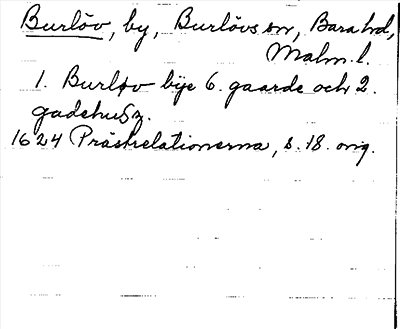 Burlöv, by, Burlövs sn, Bara hd,
Malm. l.
1. Burløv bije 6. gaarde och 2.
gadehusz.
1624 Prästrelationerna, s. 18. orig.